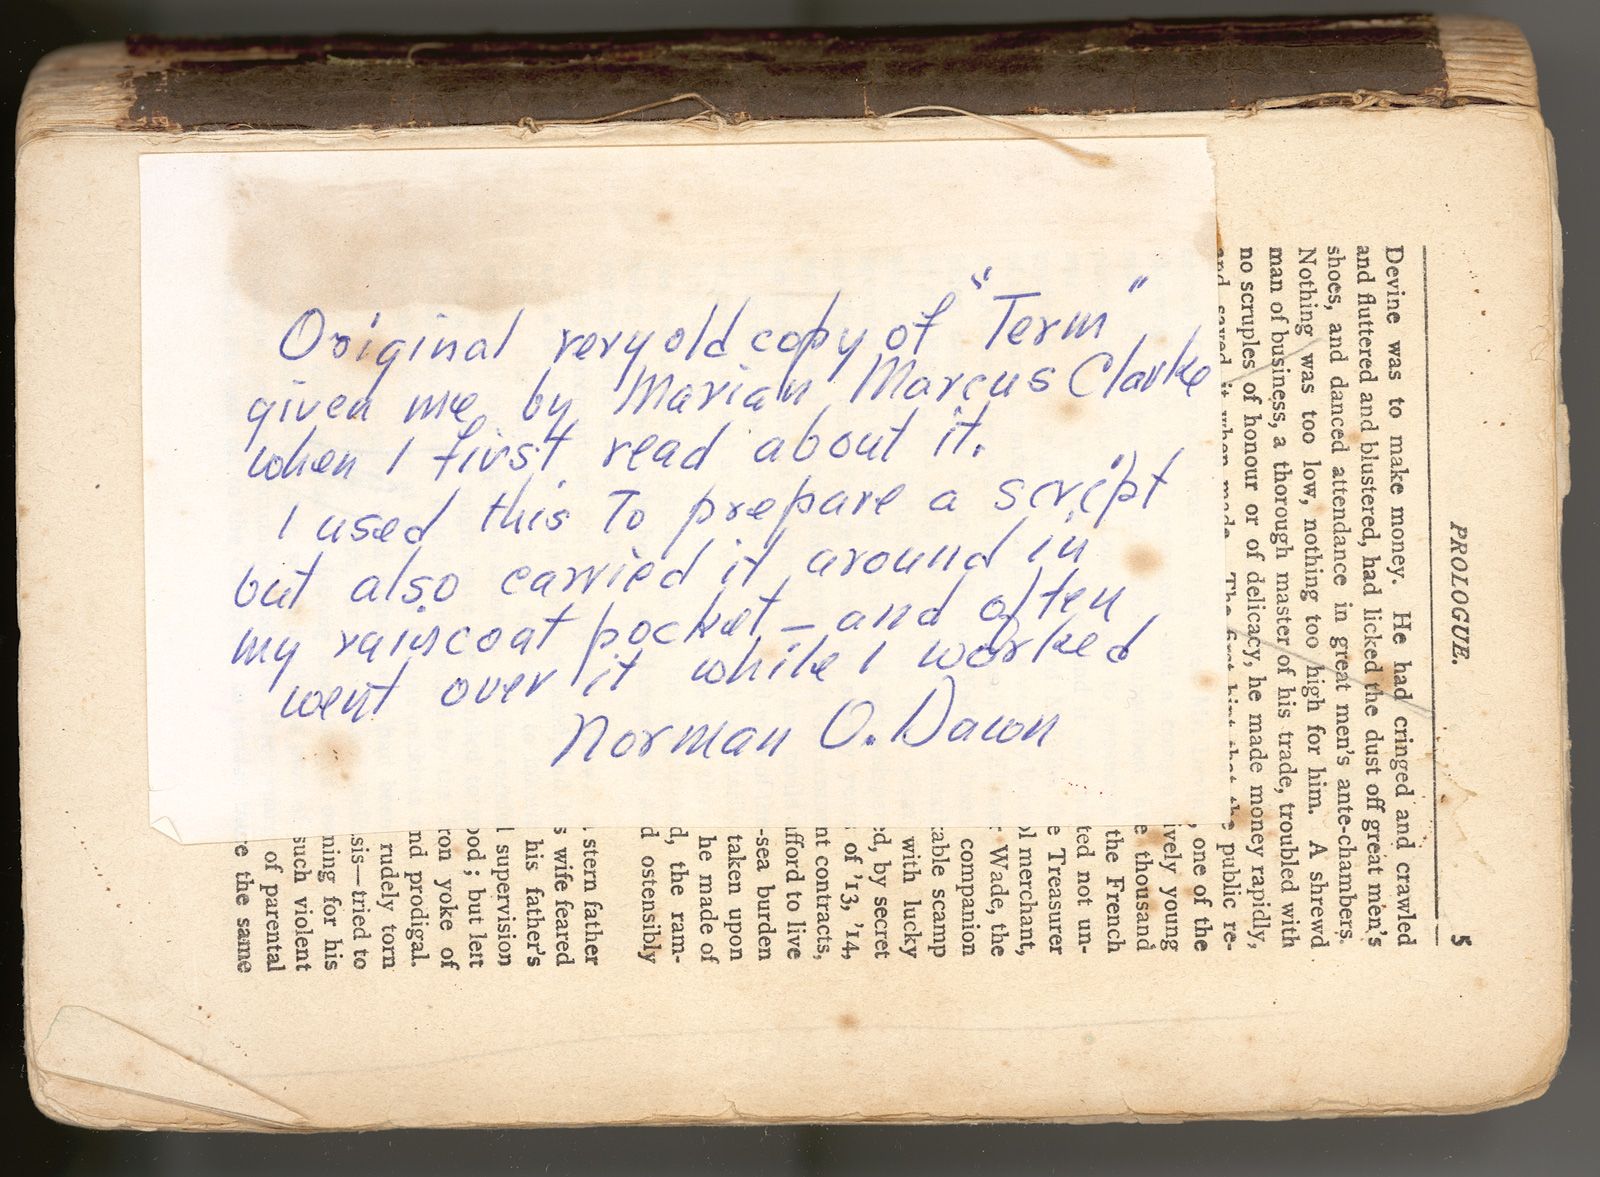 Original very old copy of "Term"
given me by Marian Marcus Clarke
when I first read about it.
I used this to prepare a script
but also carried it around in
my raincoat pocket – and often
went over it while I worked
Norman O. Dawn
PROLOGUE. 5
Devine was to make money. He had cringed and crawled
and fluttered and blustered, had licked the dust off great men's
shoes, and danced attendance in great men's ante-chambers.
Nothing was too low, nothing too high for him. A shrewd
man of business, a thorough master of his trade, troubled with
no scruples of honour or of delicacy, he made money rapidly,
and saved it when made. The first hint that the public re-
, one of the
ively young
e thousand
the French
ted not un-
e Treasurer
ol merchant,
r Wade, the
companion
table scamp
with lucky
ed, by secret
of '13, '14,
nt contracts,
fford to live
-sea burden
taken upon
he made of
d, the ram-
d ostensibly
stern father
s wife feared
his father's
l supervision
ood; but left
ron yoke of
nd prodigal.
rudely torn
sis—tried to
ning for his
such violent
of parental
re the same